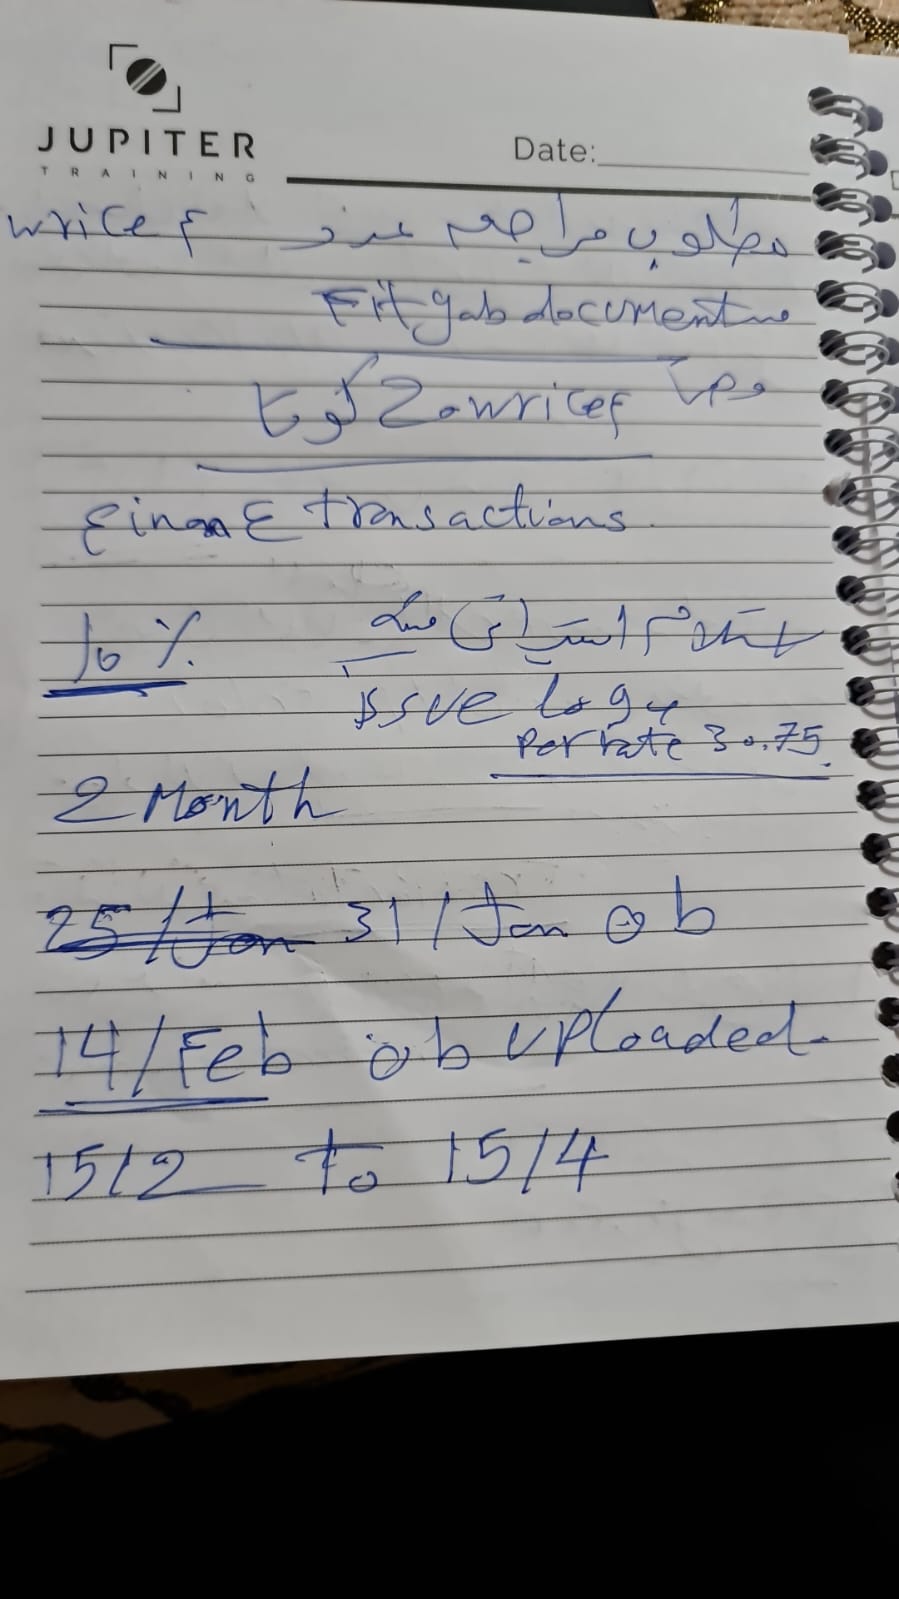 JUPITER
TRAINING
Date:
مطلوب مراجعه عدد wricef
من Fit gab document
20 wricef
Finance transactions
10 %
استخدام
issue log
Per rate 30.75
2 Month
25/Jan 31/Jan ob
14/Feb ob uploaded.
15/2 to 15/4